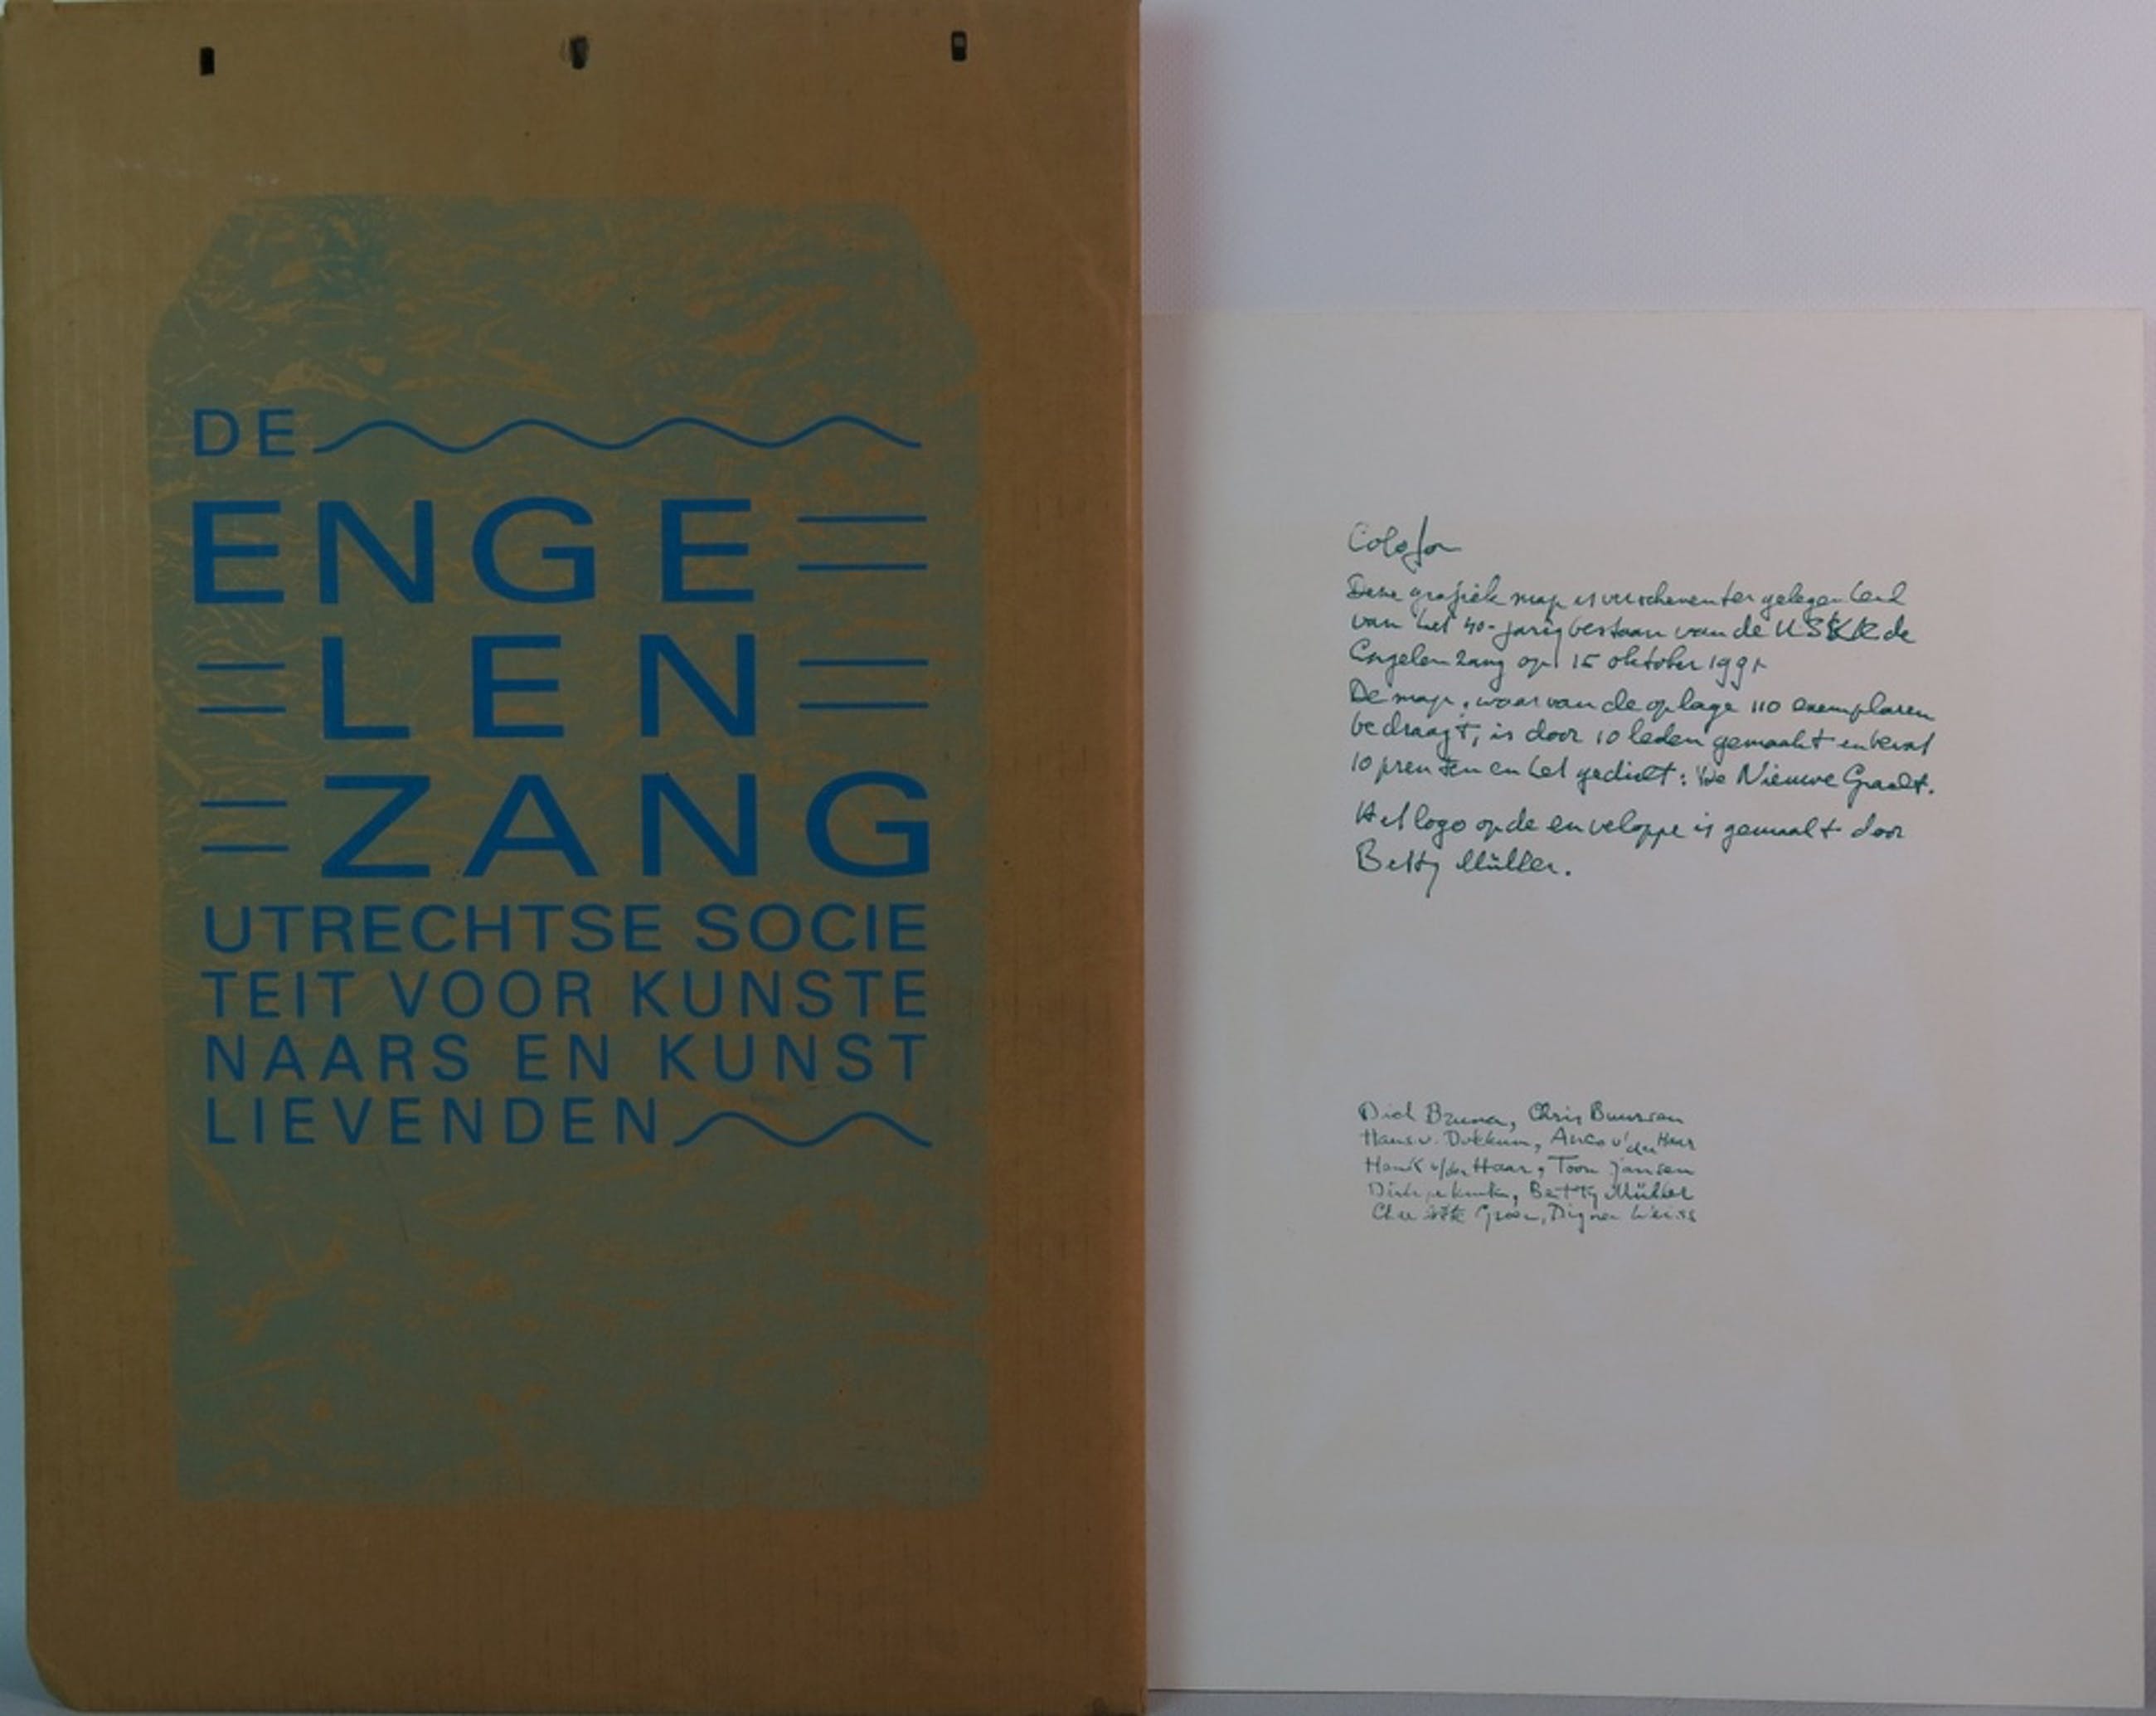 DE
ENGE
LEN
ZANG
UTRECHTSE SOCIE
TEIT VOOR KUNSTE
NAARS EN KUNST
LIEVENDEN
Colofon
Deze grafiek map is verschenen ter gelegenheid
van het 40-jarig bestaan van de USKK de
Engelenzang op 15 oktober 1991
De map, waarvan de oplage 110 exemplaren
bedraagt, is door 10 leden gemaakt en bevat
10 prenten en het gedicht: De Nieuwe Gracht.
Het logo op de enveloppe is gemaakt door
Betty Müller.
Dick Bruna, Chris Buursen
Hans v. Dokkum, Anco v/
Henk v/der Haar, Toon Jansen
Betty Müller
Groen, Digna Weiss